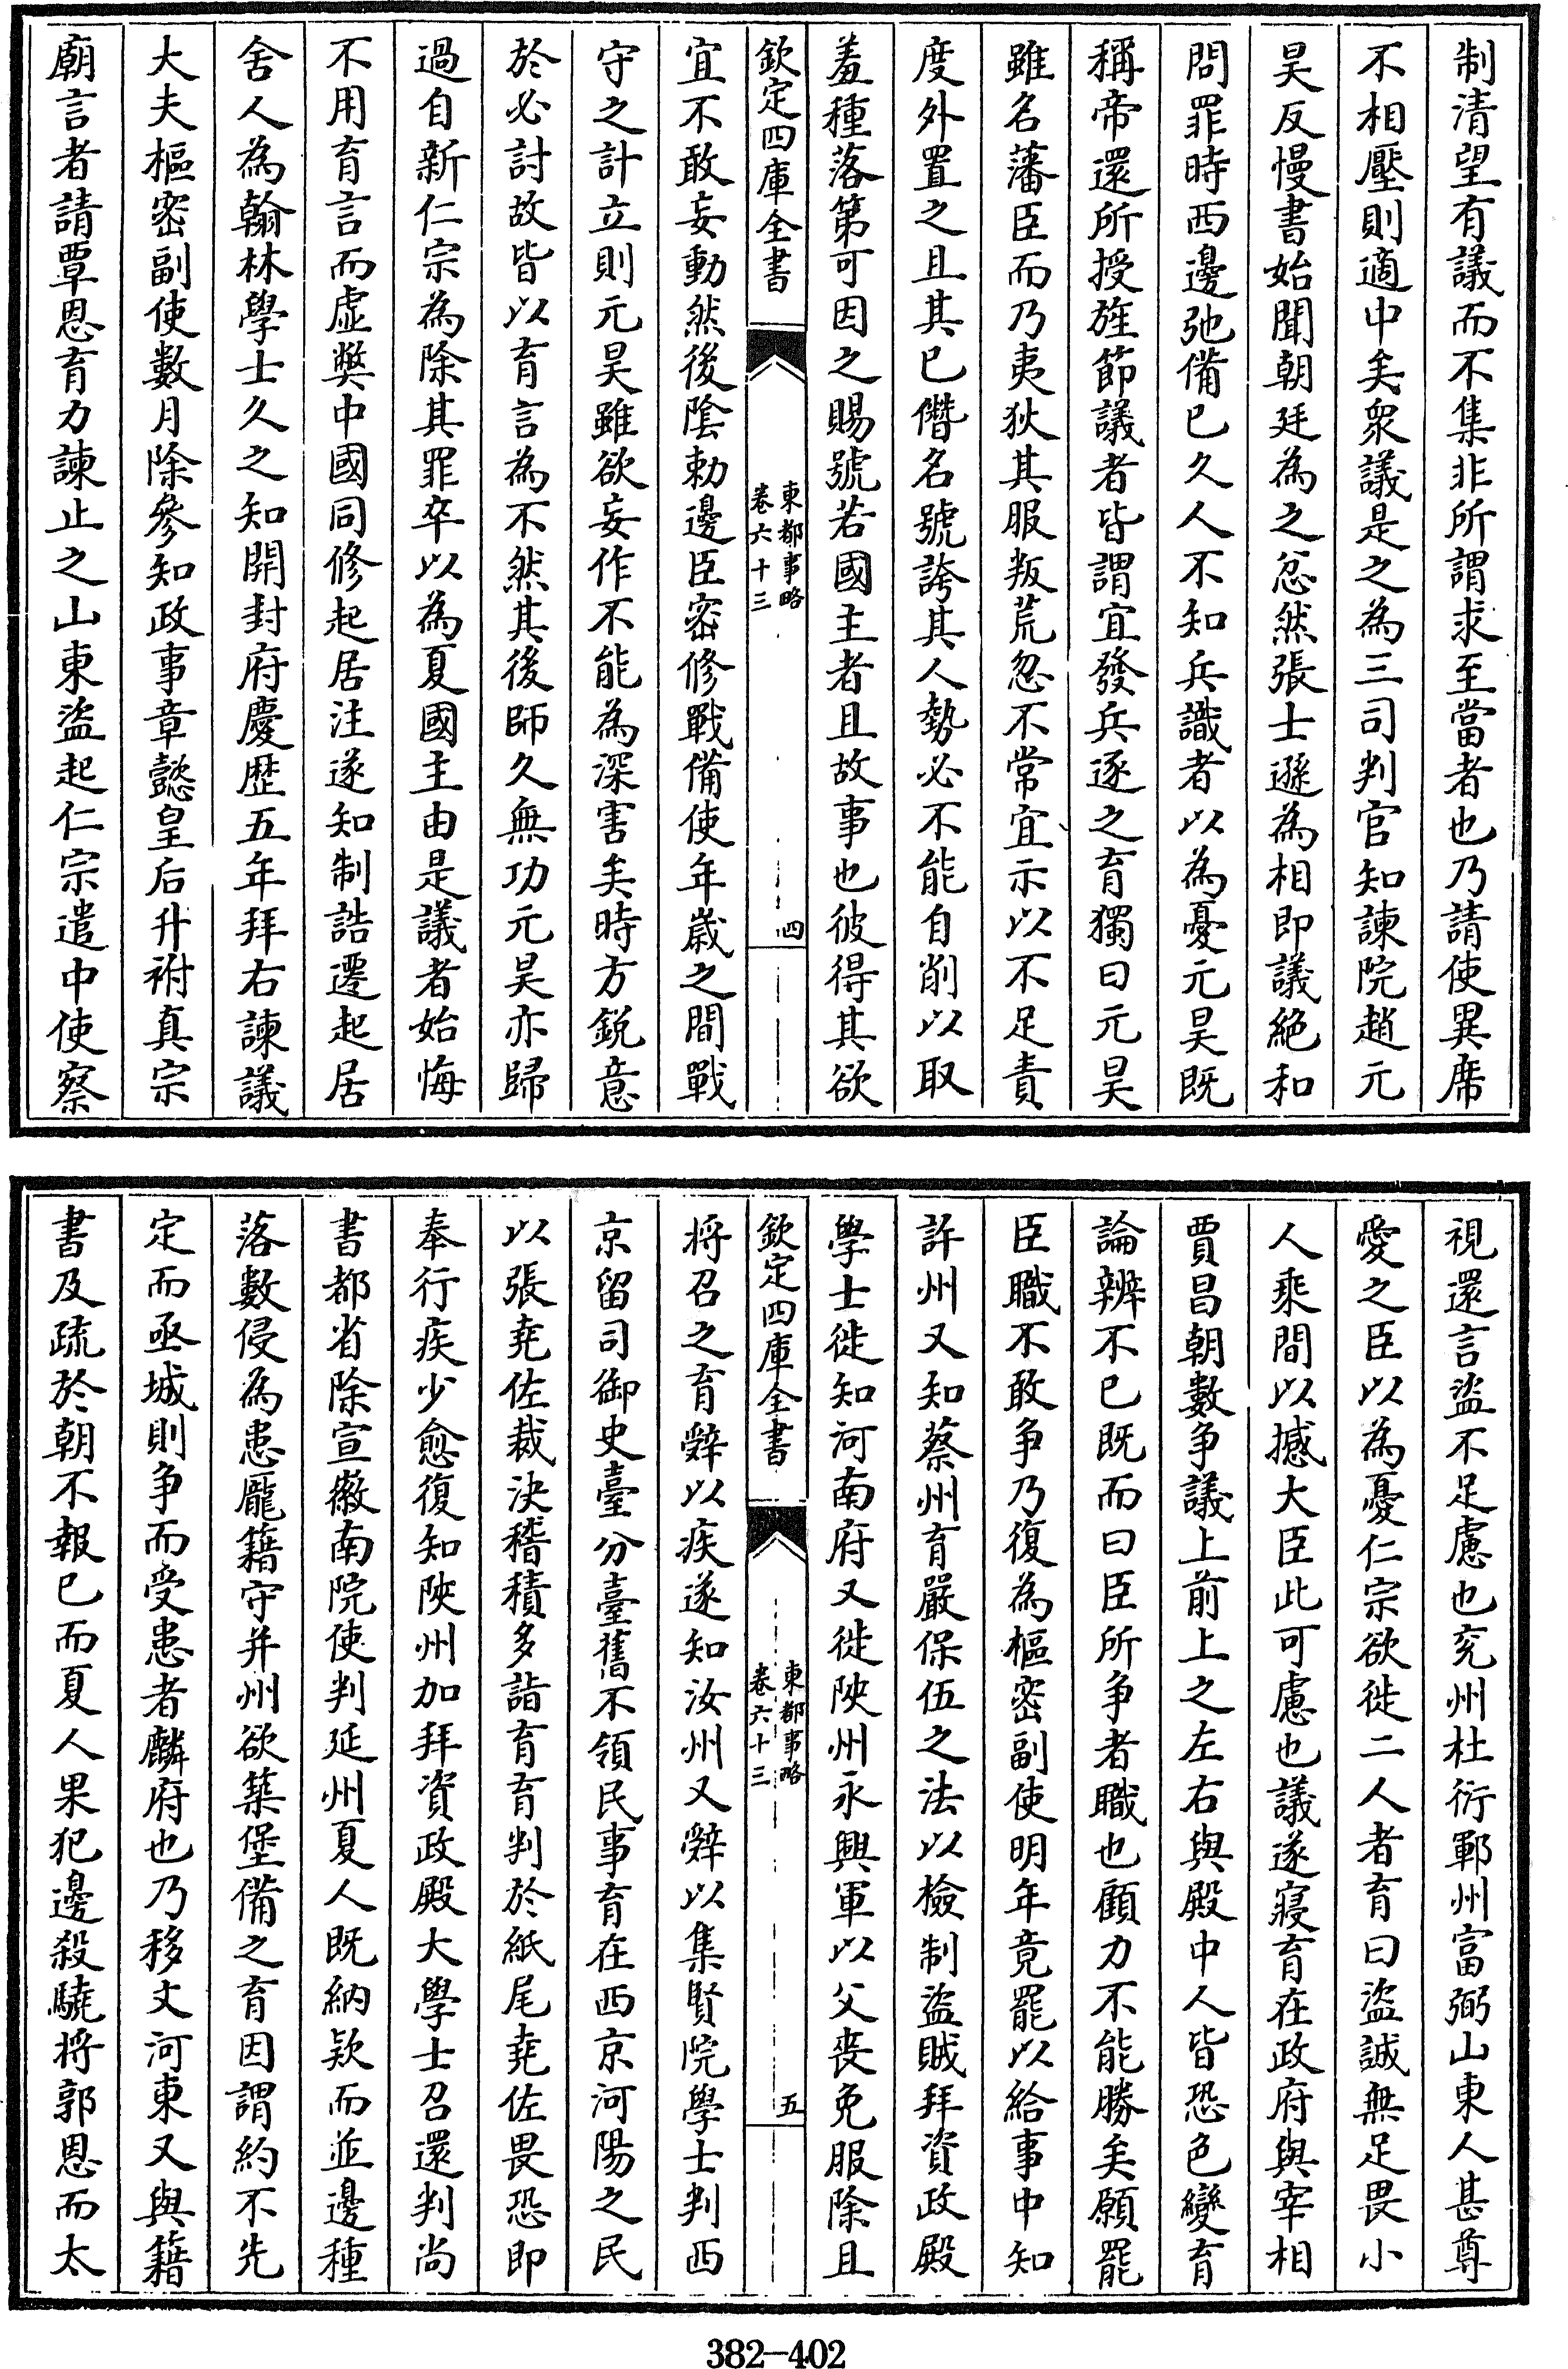 制清望有議而不集非所謂求至當者也乃請使異席
不相壓則適中矣衆議是之為三司判官知諫院趙元
昊反慢書始聞朝廷為之忿然張士遜為相即議絶和
問罪時西邊弛備已久人不知兵識者以為憂元昊既
稱帝還所授旌節議者皆謂宜發兵逐之育獨曰元昊
雖名藩臣而乃夷狄其服叛荒忽不常宜示以不足責
度外置之且其已僭名號誇其人勢必不能自削以取
羞種落第可因之賜號若國主者且故事也彼得其欲
欽定四庫全書
東都事略
卷六十三
四
宜不敢妄動然後陰勅邊臣密修戰備使年嵗之間戰
守之計立則元昊雖欲妄作不能為深害矣時方鋭意
於必討故皆以育言為不然其後師久無功元昊亦歸
過自新仁宗為除其罪卒以為夏國主由是議者始悔
不用育言而虛弊中國同修起居注遂知制誥遷起居
舍人為翰林學士久之知開封府慶歴五年拜右諫議
大夫樞密副使數月除參知政事章懿皇后升祔真宗
廟言者請覃恩育力諫止之山東盜起仁宗遣中使察
視還言盜不足慮也兖州杜衍鄆州富弼山東人甚尊
愛之臣以為憂仁宗欲徙二人者育曰盜誠無足畏小
人乘間以撼大臣此可慮也議遂寢育在政府與宰相
賈昌朝數争議上前上之左右與殿中人皆恐色變育
論辨不已既而曰臣所争者職也顧力不能勝矣願罷
臣職不敢争乃復為樞密副使明年竟罷以給事中知
許州又知蔡州育嚴保伍之法以檢制盜賊拜資政殿
學士徙知河南府又徙陜州永興軍以父喪免服除且
欽定四庫全書
東都事略
卷六十三
五
將召之育辭以疾遂知汝州又辭以集賢院學士判西
京留司御史臺分臺舊不領民事育在西京河陽之民
以張堯佐裁決稽積多詣育育判於紙尾堯佐畏恐即
奉行疾少愈復知陜州加拜資政殿大學士召還判尚
書都省除宣徽南院使判延州夏人既納欵而並邊種
落數侵為患龎籍守并州欲築堡備之育因謂約不先
定而亟城則争而受患者麟府也乃移文河東又與籍
書及疏於朝不報已而夏人果犯邊殺驍將郭恩而太
382-402